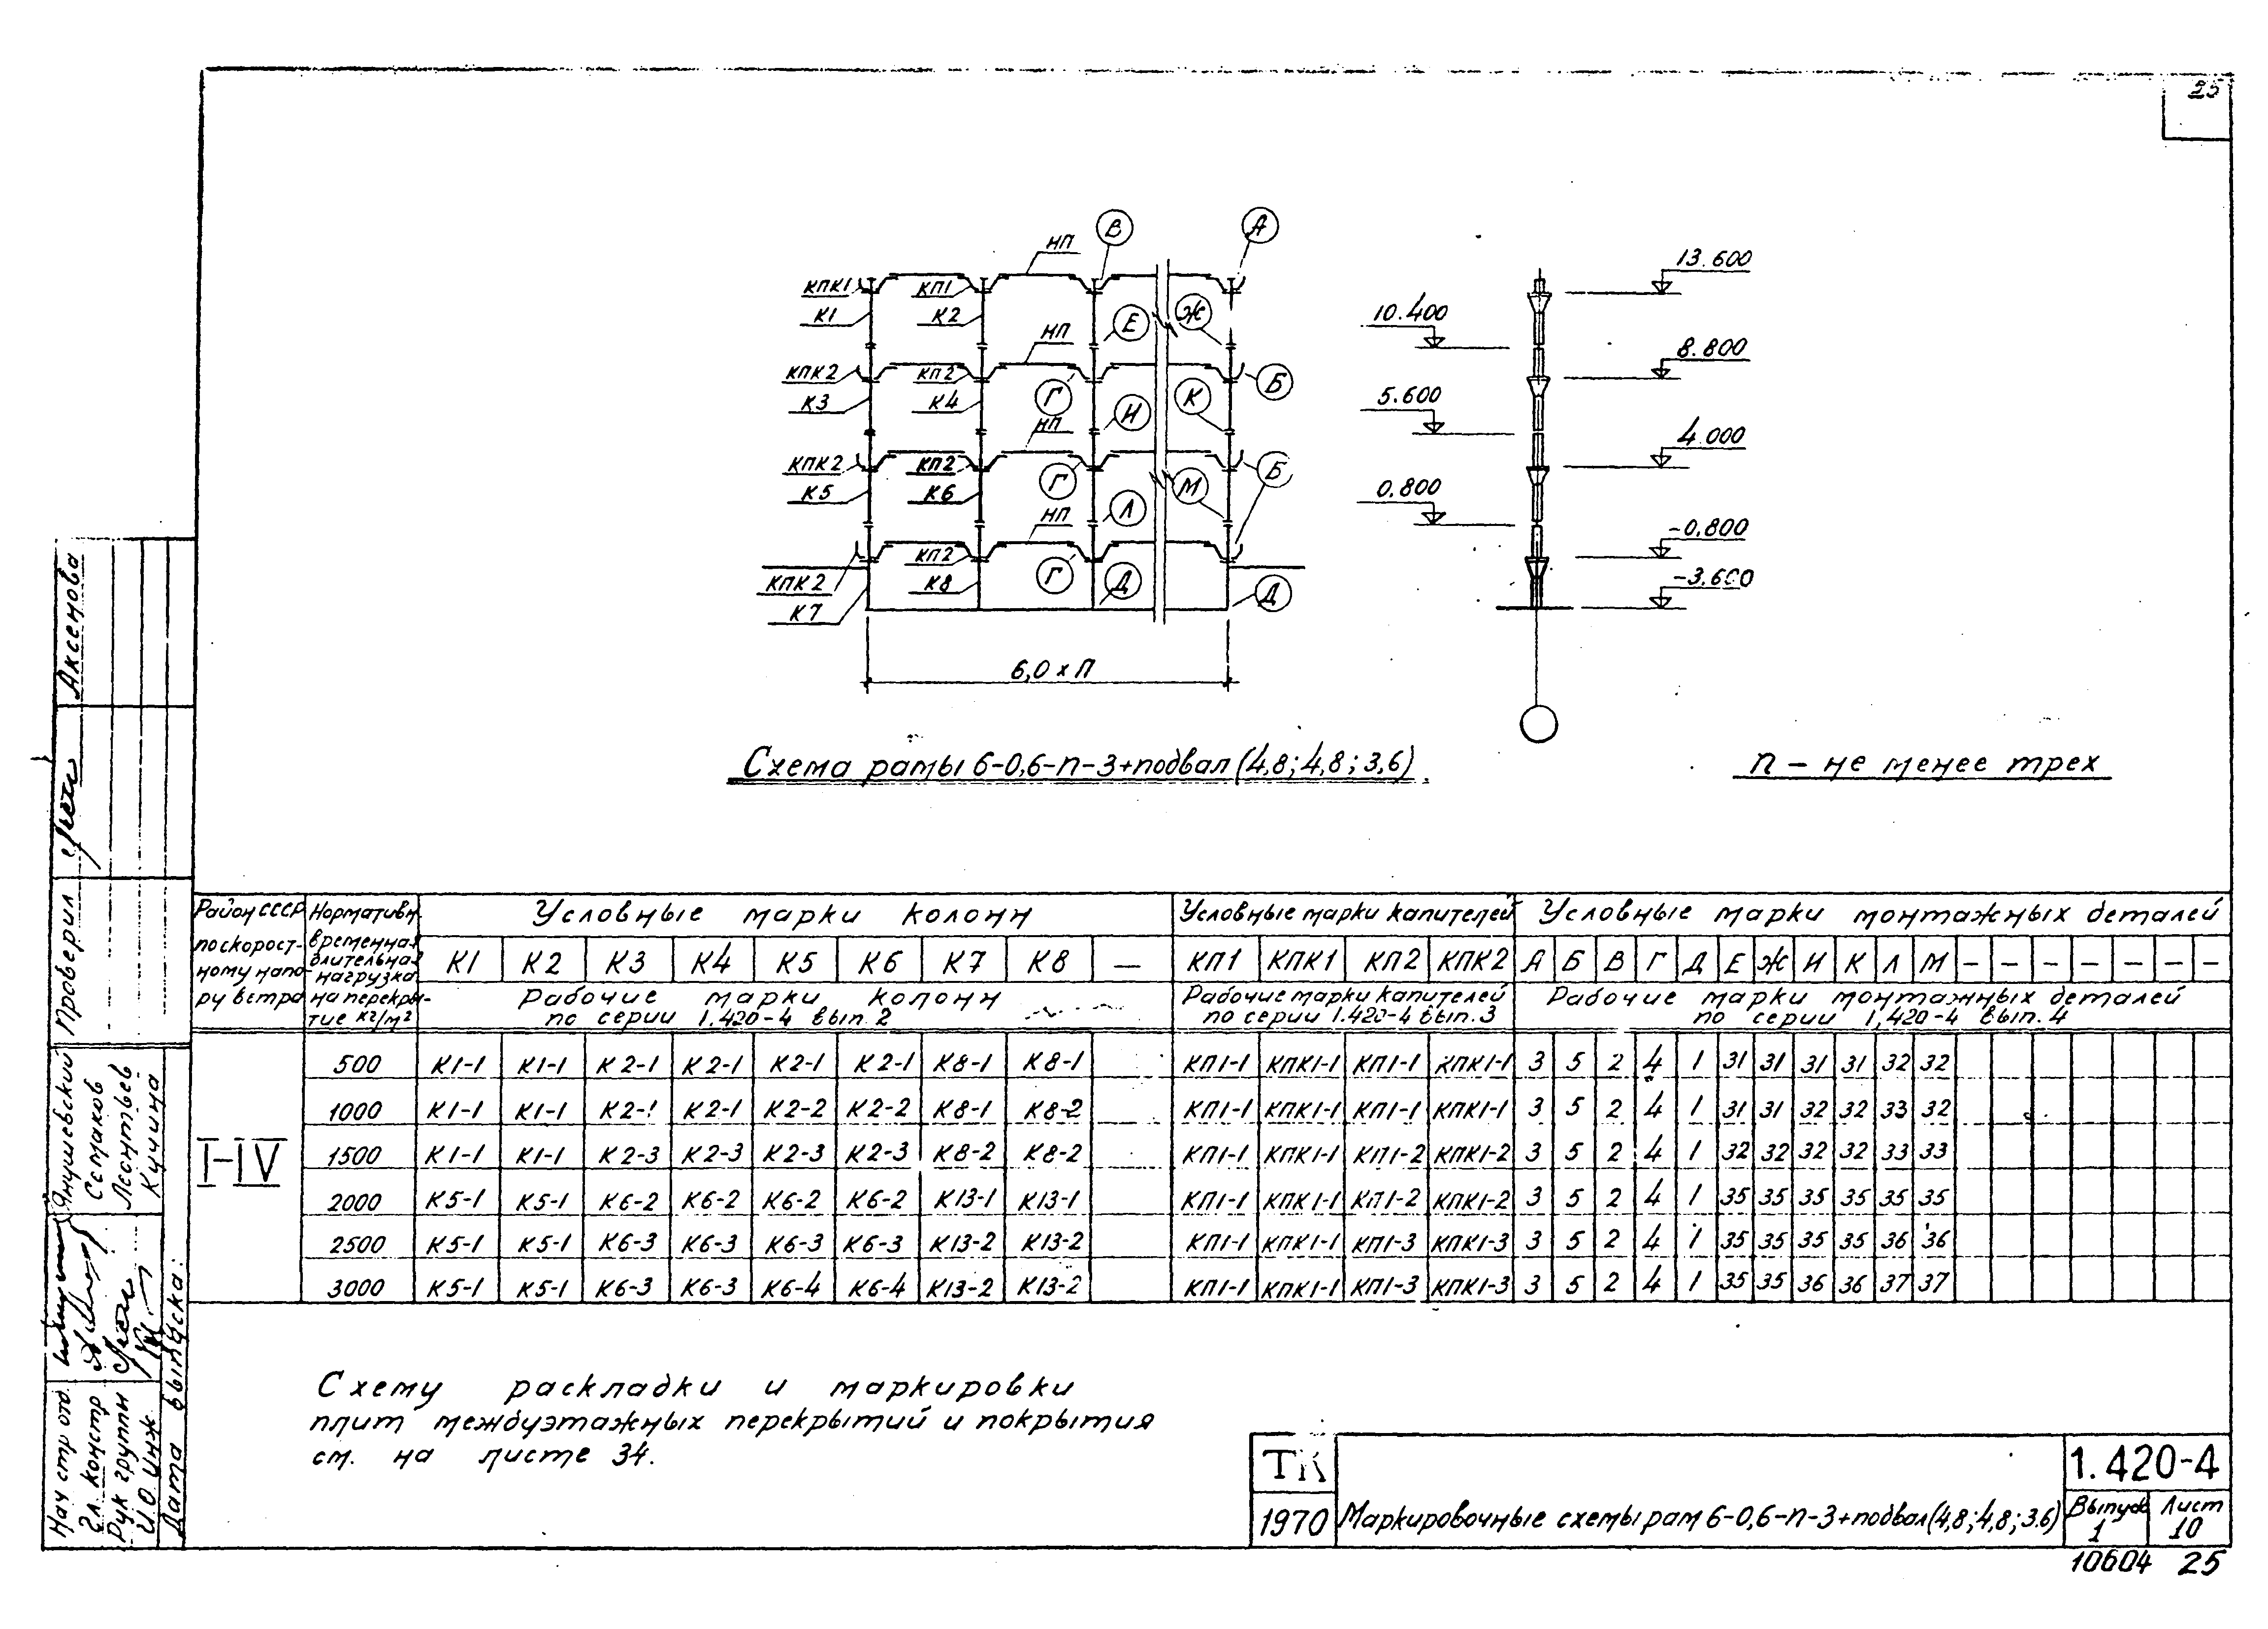 25
В
А
НП
13.600
КПК1
КП1
К1
К2
Е
Ж
10.400
НП
8.800
КПК2
КП2
Г
Б
К3
К4
И
К
5.600
НП
4.000
КПК2
КП2
Г
М
Б
К5
К6
Л
0.800
НП
-0.800
КПК2
КП2
К8
Г
Д
Д
К7
-3.600
6,0 х П
Схема рамы 6-0,6-п-3+подвал (4,8; 4,8; 3,6)
п - не менее трех
Район СССР по скоростному напору ветра
Нормативн. временная длительная нагрузка на перекрытие кг/м²
Условные марки колонн
Условные марки капителей
Условные марки монтажных деталей
К1 К2 К3 К4 К5 К6 К7 К8 —
КП1 КПК1 КП2 КПК2
А Б В Г Д Е Ж И К Л М - - - - - - -
Рабочие марки колонн
по серии 1.420-4 вып. 2
Рабочие марки капителей
по серии 1.420-4 вып. 3
Рабочие марки монтажных деталей
по серии 1,420-4 вып. 4
I-IV
500 К1-1 К1-1 К2-1 К2-1 К2-1 К2-1 К8-1 К8-1 КП1-1 КПК1-1 КП1-1 КПК1-1 3 5 2 4 1 31 31 31 31 32 32
1000 К1-1 К1-1 К2-1 К2-1 К2-2 К2-2 К8-1 К8-2 КП1-1 КПК1-1 КП1-1 КПК1-1 3 5 2 4 1 31 31 32 32 33 32
1500 К1-1 К1-1 К2-3 К2-3 К2-3 К2-3 К8-2 К8-2 КП1-1 КПК1-1 КП1-2 КПК1-2 3 5 2 4 1 32 32 32 32 33 33
2000 К5-1 К5-1 К6-2 К6-2 К6-2 К6-2 К13-1 К13-1 КП1-1 КПК1-1 КП1-2 КПК1-2 3 5 2 4 1 35 35 35 35 35 35
2500 К5-1 К5-1 К6-3 К6-3 К6-3 К6-3 К13-2 К13-2 КП1-1 КПК1-1 КП1-3 КПК1-3 3 5 2 4 1 35 35 35 35 36 36
3000 К5-1 К5-1 К6-3 К6-3 К6-4 К6-4 К13-2 К13-2 КП1-1 КПК1-1 КП1-3 КПК1-3 3 5 2 4 1 35 35 36 36 37 37
Схему раскладки и маркировки
плит междуэтажных перекрытий и покрытия
см. на листе 34.
ТК
1970
Маркировочные схемы рам 6-0,6-п-3+подвал (4,8; 4,8; 3.6)
1.420-4
Выпуск 1
Лист 10
10604 25
Проверил Аксенова
Нач стр отд. Янушевский
Гл. констр Семаков
Рук группы Леонтьев
И.О. инж Кучина
Дата выпуска: